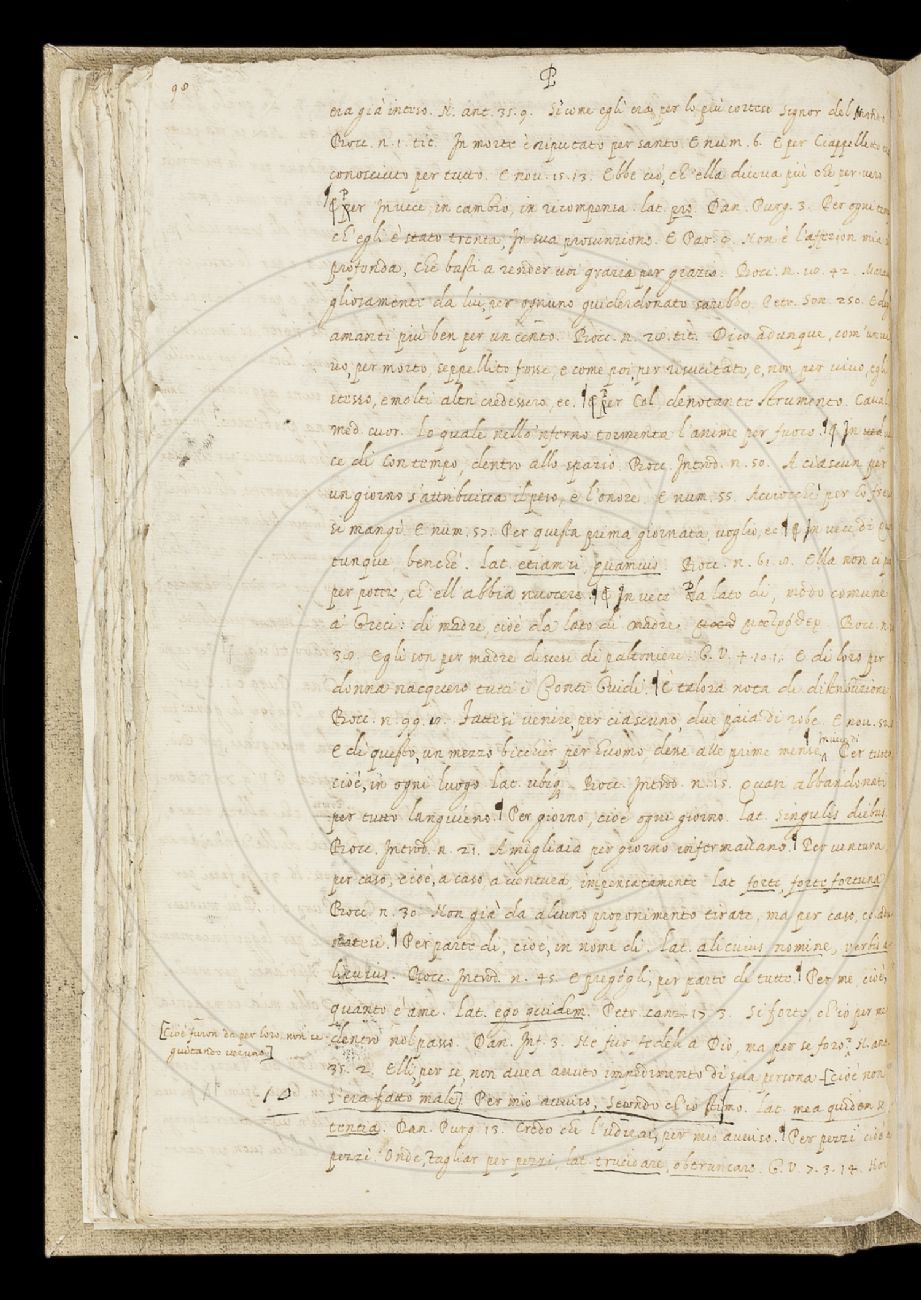 98
P
era già inteso. N. ant. 35. 9. Sì come egli era, per lo più cortese Signor del
Bocc. n. 1. tit. In morte è riputato per santo. E num. 6. E per Ciappelletto
conosciuto per tutto. E nov. 15. 13. Ebbe ciò, ch'ella diceva più che per vero
¶ per In vece, in cambio, in ricompensa. lat. pro. Dan. Purg. 3. Per ogni
ch'egli è stato trenta, In sua prosunzione. E Par. 4. Non è l'affezion mia
profonda, che basti a render voi grazia per grazia. Bocc. n. 18. 42.
gliosamente da lui, per ognuno guiderdonato sarebbe. Petr. Son. 250. E
amanti più ben per un cento. Bocc. n. 28. tit. Dico adunque, com'
vo, per morto, seppellito fosse, e come poi, per risucitato, e, non per vivo, egli
stesso, e molti altri credessero, ec. ¶ per Col, denotante strumento. Caval.
med. cuor. Lo quale nello 'nferno tormenta l'anime per fuoco. ¶ In
ce di Con tempo, dentro allo spazio. Bocc. Introd. n. 50. A ciascun per
un giorno s'attribuisca il peso, e l'onore. E num. 55. Acciocchè per lo fresco
si mangi. E num. 57. Per questa prima giornata, voglio, ec. ¶ In vece di
tunque, benchè. lat. etiam si, quamvis. Bocc. n. 61. 8. Ella non ci può
per potere, ch'ell'abbia nuocere. ¶ In vece Da lato di, modo comune
a' Greci: di madre, cioè da lato di madre. μητρόθεν. Bocc. n.
38. Egli son per madre discesi di paltoniere. G. V. 4. 10. 1. E di loro per
donna nacquero tutti i Conti Guidi. ¶ E talora nota di distribuzione
Bocc. n. 99. 8. Fattesi venire, per ciascuno, due paia di robe. E nov.
E di questo, un mezzo bicchier per huomo, dene alle prime mense. In vece di Per tutto
cioè, in ogni luogo. lat. ubiq. Bocc. Introd. n. 15. Quasi abbandonati
per tutto languieno. ¶ Per giorno, cioè ogni giorno. lat. singulis diebus.
Bocc. Introd. n. 21. A migliaia per giorno infermavano. ¶ Per ventura,
per caso, cioè, a caso, a ventura, impensatamente. lat. forte, forte fortuna.
Bocc. n. 30. Non già da alcuno proponimento tirate, ma per caso,
natesi. ¶ Per parte di, cioè, in nome di. lat. alicuius nomine, verbis a-
licuius. Bocc. Introd. n. 45. E pregògli, per parte di tutte. ¶ Per me, cioè,
quanto è a me. lat. ego quidem. Petr. canz. 17. 3. Sì forte, ch'io per me
dentro nol passo. Dan. Inf. 3. Nè fur fedeli a Dio, ma per se foro. N. ant.
[cioè furon da per loro, non se-
guitando veruno]
35. 2. Elli, per se, non avea avuto impedimento di sua persona [cioè non
s'era fatto male] Per mio avviso, Secondo ch'io stimo. lat. mea quidem sen
tentia. Dan. Purg. 13. Credo che l'udirai, per mio avviso. ¶ Per pezzi cioè
pezzi. Onde, tagliar per pezzi. lat. trucidare, obtruncare. G. V. 7. 3. 14.